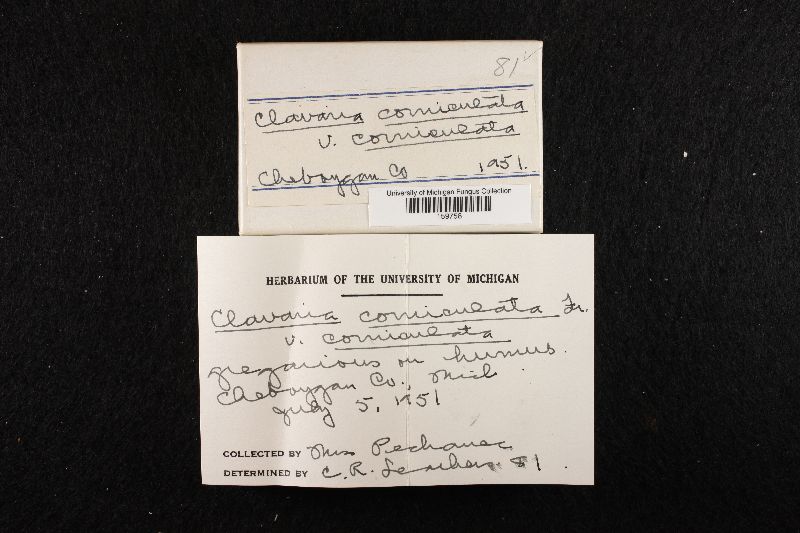 81
Clavaria corniculata
v. corniculata
Cheboygan Co 1951.
University of Michigan Fungus Collection
HERBARIUM OF THE UNIVERSITY OF MICHIGAN
Clavaria corniculata Fr.
v. corniculata
gregarious on humus.
Cheboygan Co., Mich
July 5, 1951
COLLECTED BY Pechanec
DETERMINED BY C.R. 81